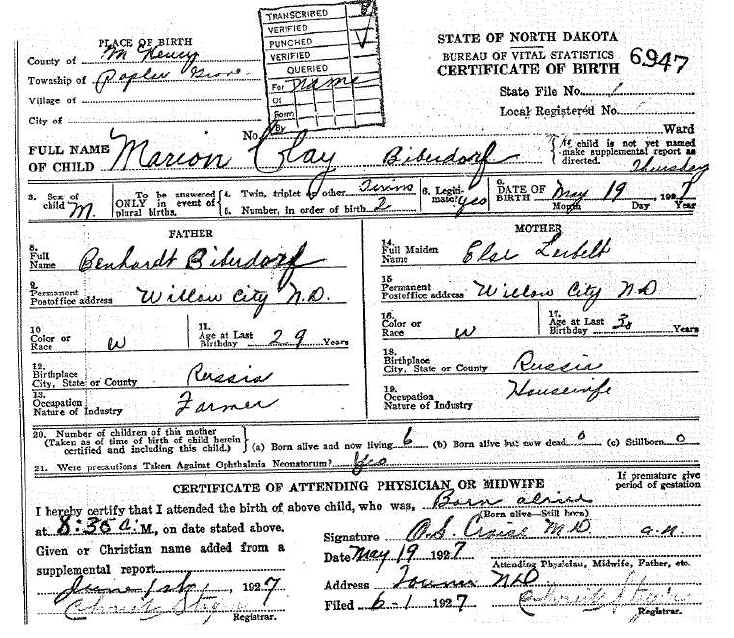 PLACE OF BIRTH
County of McHenry
Township of Poplar Grove
Village of
City of
TRANSCRIBED
VERIFIED
PUNCHED
VERIFIED
QUERIED
For name
Of
Form
By
STATE OF NORTH DAKOTA
BUREAU OF VITAL STATISTICS
CERTIFICATE OF BIRTH
6947
State File No.
Local Registered No.
No. Ward
FULL NAME OF CHILD Marion Clay Biberdorf
If child is not yet named make supplemental report as directed.
Thursday
3. Sex of child M.
To be answered ONLY in event of plural births.
4. Twin, triplet or other Twins
5. Number, in order of birth 2
6. Legitimate? yes
DATE OF BIRTH May 19, 1927
Month Day Year
FATHER
8. Full Name Benhardt Biberdorf
9. Permanent Postoffice address Willow City N.D.
10 Color or Race W
11. Age at Last Birthday 29 Years
12. Birthplace City, State or County Russia
13. Occupation Nature of Industry Farmer
MOTHER
14. Full Maiden Name Else Leibelt
15 Permanent Postoffice address Willow City N D
16. Color or Race W
17. Age at Last Birthday 30 Years
18. Birthplace City, State or County Russia
19. Occupation Nature of Industry Housewife
20. Number of children of this mother (Taken as of time of birth of child herein certified and including this child.) (a) Born alive and now living 6 (b) Born alive but now dead 0 (c) Stillborn 0
21. Were precautions Taken Against Ophthalmia Neonatorum? Yes
CERTIFICATE OF ATTENDING PHYSICIAN OR MIDWIFE
If premature give period of gestation
I hereby certify that I attended the birth of above child, who was, Born
(Born alive—Still born)
at 8:35 a. M., on date stated above.
Signature M D
Given or Christian name added from a
Date May 19 1927
Attending Physician, Midwife, Father, etc.
supplemental report
June 1st, 1927
Address Towner N D
Registrar.
Filed 6-1 1927
Registrar.